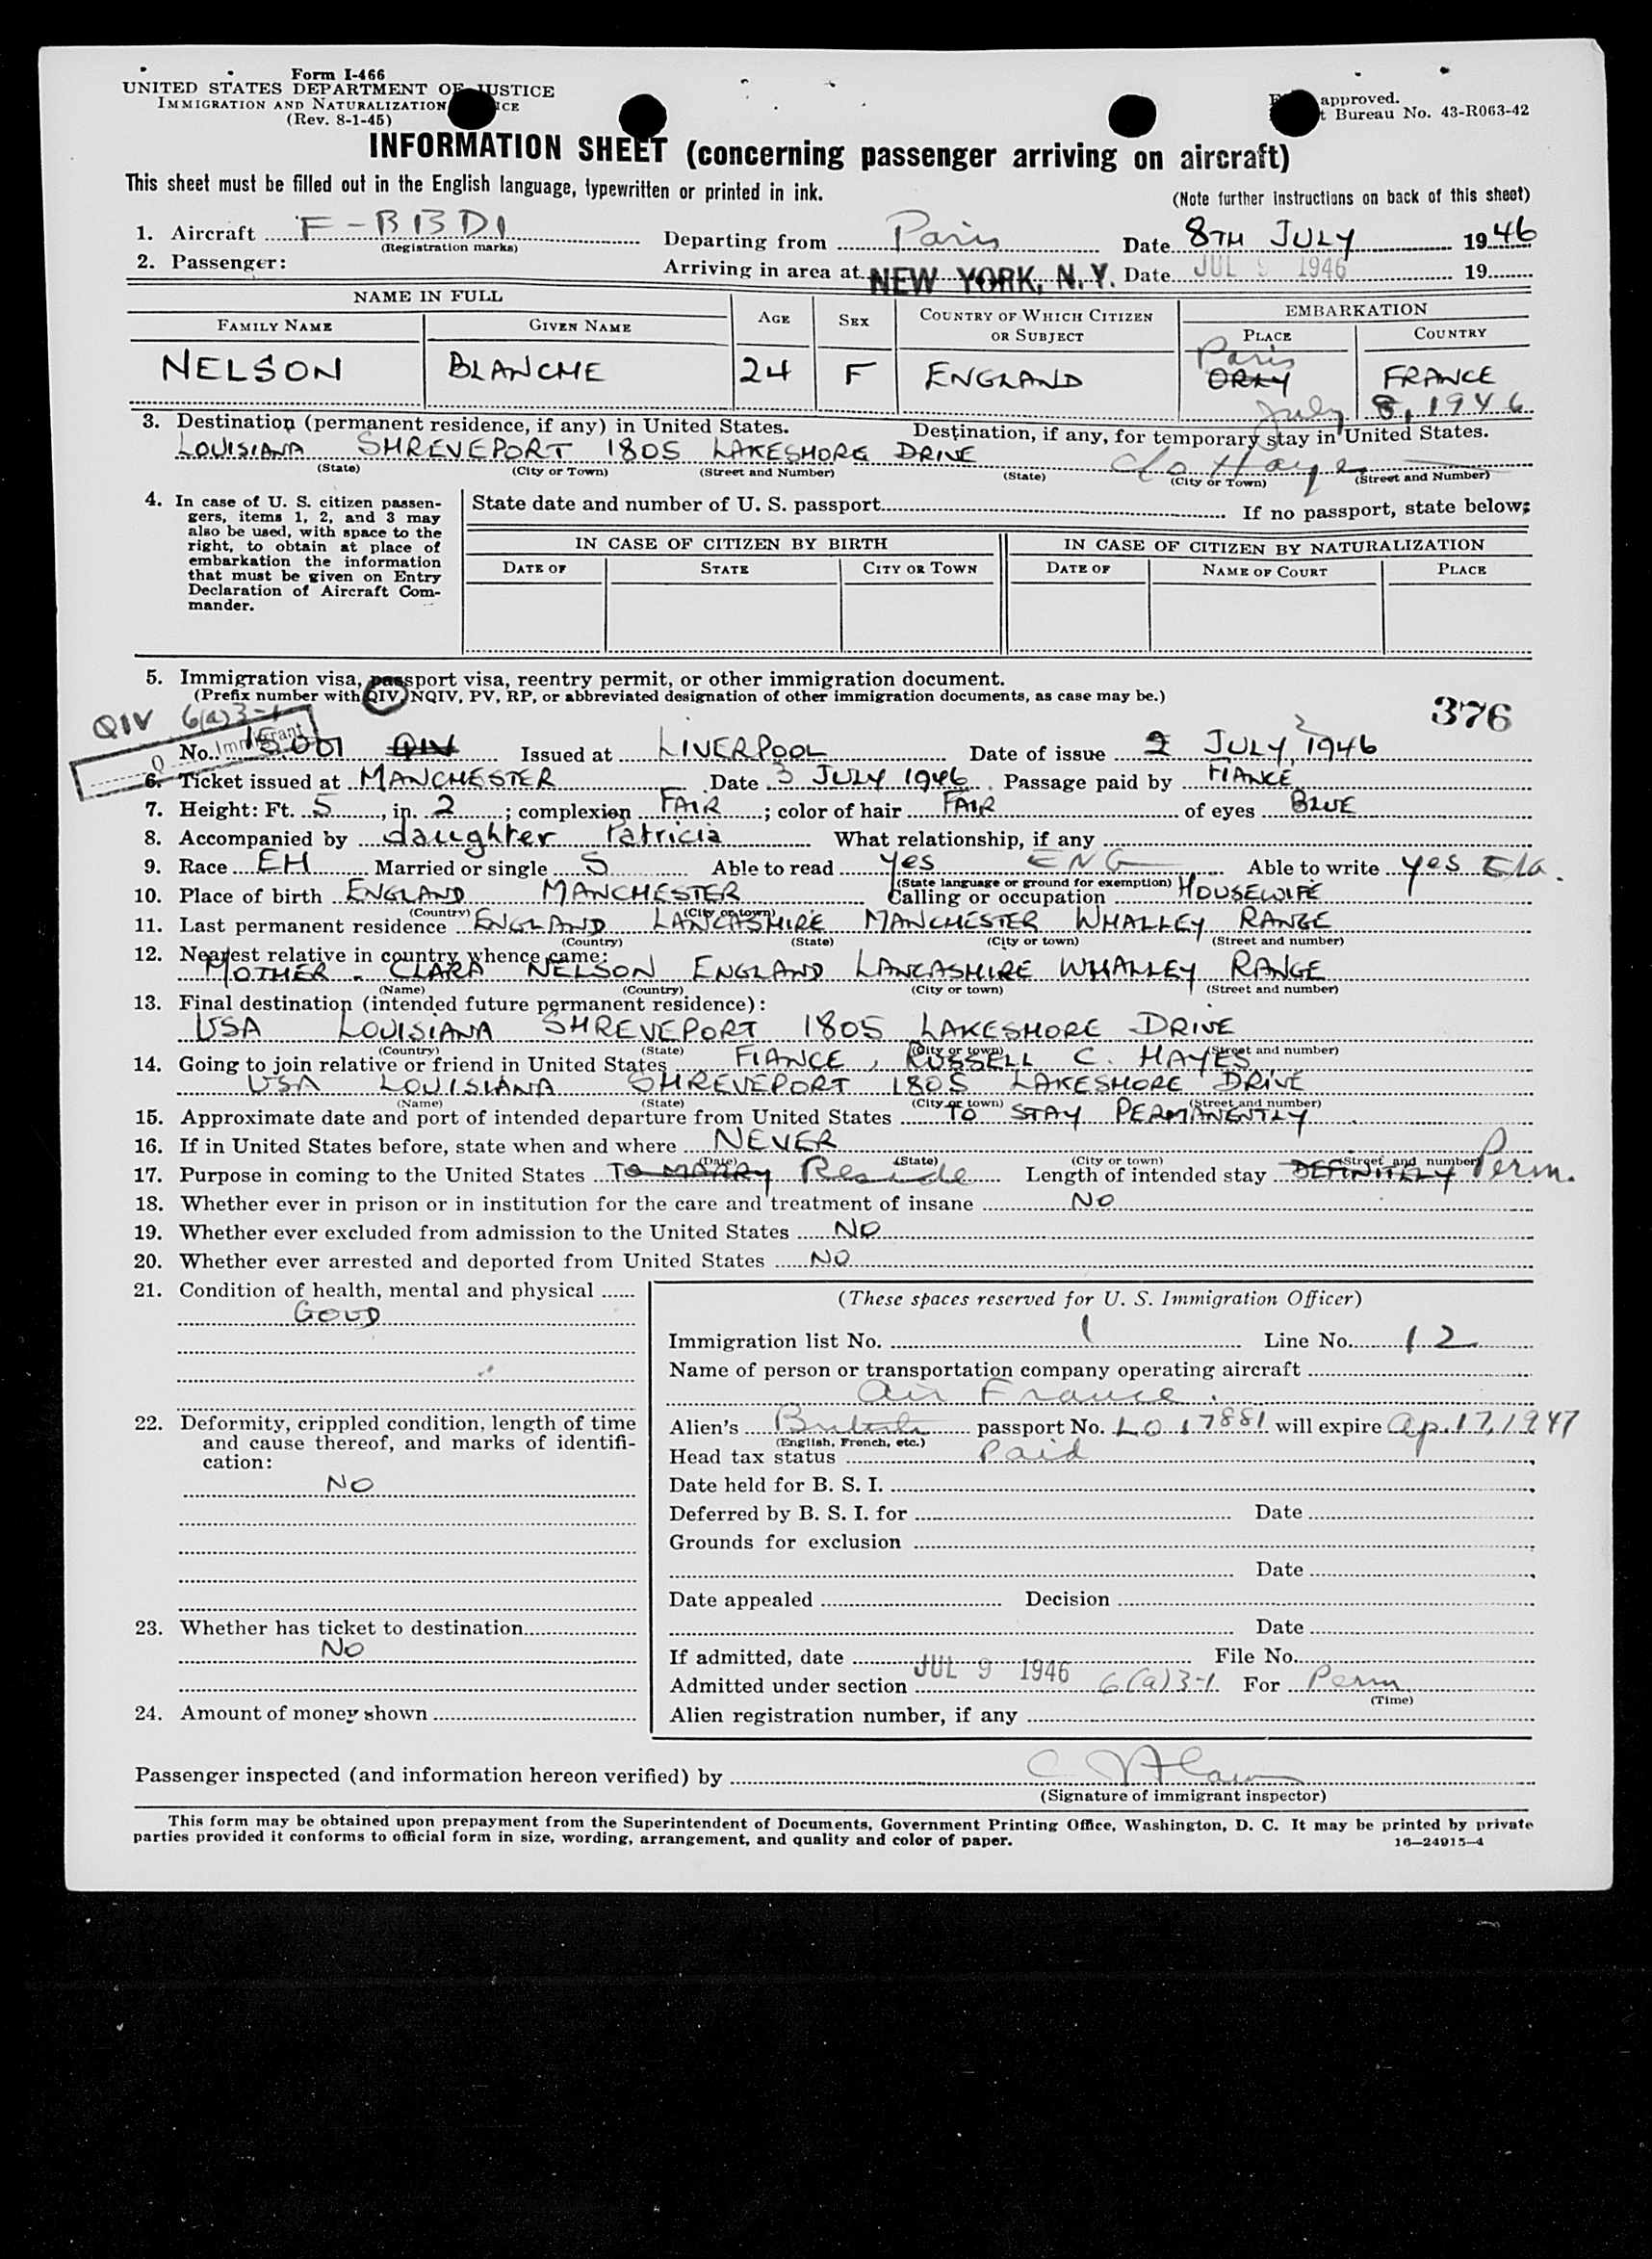 Form I-466
UNITED STATES DEPARTMENT OF JUSTICE
IMMIGRATION AND NATURALIZATION
(Rev. 8-1-45)
approved.
Bureau No. 43-R063-42
INFORMATION SHEET (concerning passenger arriving on aircraft)
This sheet must be filled out in the English language, typewritten or printed in ink.
(Note further instructions on back of this sheet)
1. Aircraft F-BBDI Departing from Paris Date 8TH JULY 1946
(Registration marks)
2. Passenger: Arriving in area at NEW YORK, N.Y. Date JUL 9 1946 19
NAME IN FULL AGE SEX COUNTRY OF WHICH CITIZEN OR SUBJECT EMBARKATION
FAMILY NAME GIVEN NAME PLACE COUNTRY
Paris
NELSON BLANCHE 24 F ENGLAND ORLY FRANCE
July 8, 1946
3. Destination (permanent residence, if any) in United States. Destination, if any, for temporary stay in United States.
LOUISIANA SHREVEPORT 1805 LAKESHORE DRIVE c/o Hayes
(State) (City or Town) (Street and Number) (State) (City or Town) (Street and Number)
4. In case of U. S. citizen passen-
gers, items 1, 2, and 3 may
also be used, with space to the
right, to obtain at place of
embarkation the information
that must be given on Entry
Declaration of Aircraft Com-
mander.
State date and number of U. S. passport If no passport, state below:
IN CASE OF CITIZEN BY BIRTH IN CASE OF CITIZEN BY NATURALIZATION
DATE OF STATE CITY OR TOWN DATE OF NAME OF COURT PLACE
5. Immigration visa, passport visa, reentry permit, or other immigration document.
(Prefix number with QIV, NQIV, PV, RP, or abbreviated designation of other immigration documents, as case may be.)
376
QIV 6(a)3-1
Q Immigrant
No. 15001 QIV Issued at LIVERPOOL Date of issue 2 3 JULY, 1946
6. Ticket issued at MANCHESTER Date 3 JULY 1946 Passage paid by FIANCE
7. Height: Ft. 5, in. 2; complexion FAIR; color of hair FAIR of eyes BLUE
8. Accompanied by daughter Patricia What relationship, if any
9. Race EH Married or single S Able to read yes ENG Able to write yes
(State language or ground for exemption)
10. Place of birth ENGLAND MANCHESTER Calling or occupation HOUSEWIFE
(Country) (City or town)
11. Last permanent residence ENGLAND LANCASHIRE MANCHESTER WHALLEY RANGE
(Country) (State) (City or town) (Street and number)
12. Nearest relative in country whence came:
MOTHER - CLARA NELSON ENGLAND LANCASHIRE WHALLEY RANGE
(Name) (Country) (City or town) (Street and number)
13. Final destination (intended future permanent residence):
USA LOUISIANA SHREVEPORT 1805 LAKESHORE DRIVE
(Country) (State) (City or town) (Street and number)
14. Going to join relative or friend in United States FIANCE, RUSSELL C. HAYES
USA LOUISIANA SHREVEPORT 1805 LAKESHORE DRIVE
(Name) (State) (City or town) (Street and number)
15. Approximate date and port of intended departure from United States TO STAY PERMANENTLY
16. If in United States before, state when and where NEVER
(Date) (State) (City or town) (Street and number)
17. Purpose in coming to the United States TO MARRY Reside Length of intended stay DEFINITELY Perm.
18. Whether ever in prison or in institution for the care and treatment of insane NO
19. Whether ever excluded from admission to the United States NO
20. Whether ever arrested and deported from United States NO
21. Condition of health, mental and physical
GOOD
22. Deformity, crippled condition, length of time
and cause thereof, and marks of identifi-
cation:
NO
23. Whether has ticket to destination
NO
24. Amount of money shown
(These spaces reserved for U. S. Immigration Officer)
Immigration list No. 1 Line No. 12
Name of person or transportation company operating aircraft
Air France.
Alien's British passport No. LO 17881 will expire Ap. 17, 1947
(English, French, etc.)
Head tax status Paid
Date held for B. S. I.
Deferred by B. S. I. for Date
Grounds for exclusion
Date
Date appealed Decision
Date
If admitted, date JUL 9 1946 File No.
Admitted under section 6(a)3-1 For Perm
(Time)
Alien registration number, if any
Passenger inspected (and information hereon verified) by
(Signature of immigrant inspector)
This form may be obtained upon prepayment from the Superintendent of Documents, Government Printing Office, Washington, D. C. It may be printed by private
parties provided it conforms to official form in size, wording, arrangement, and quality and color of paper. 16—24915-4